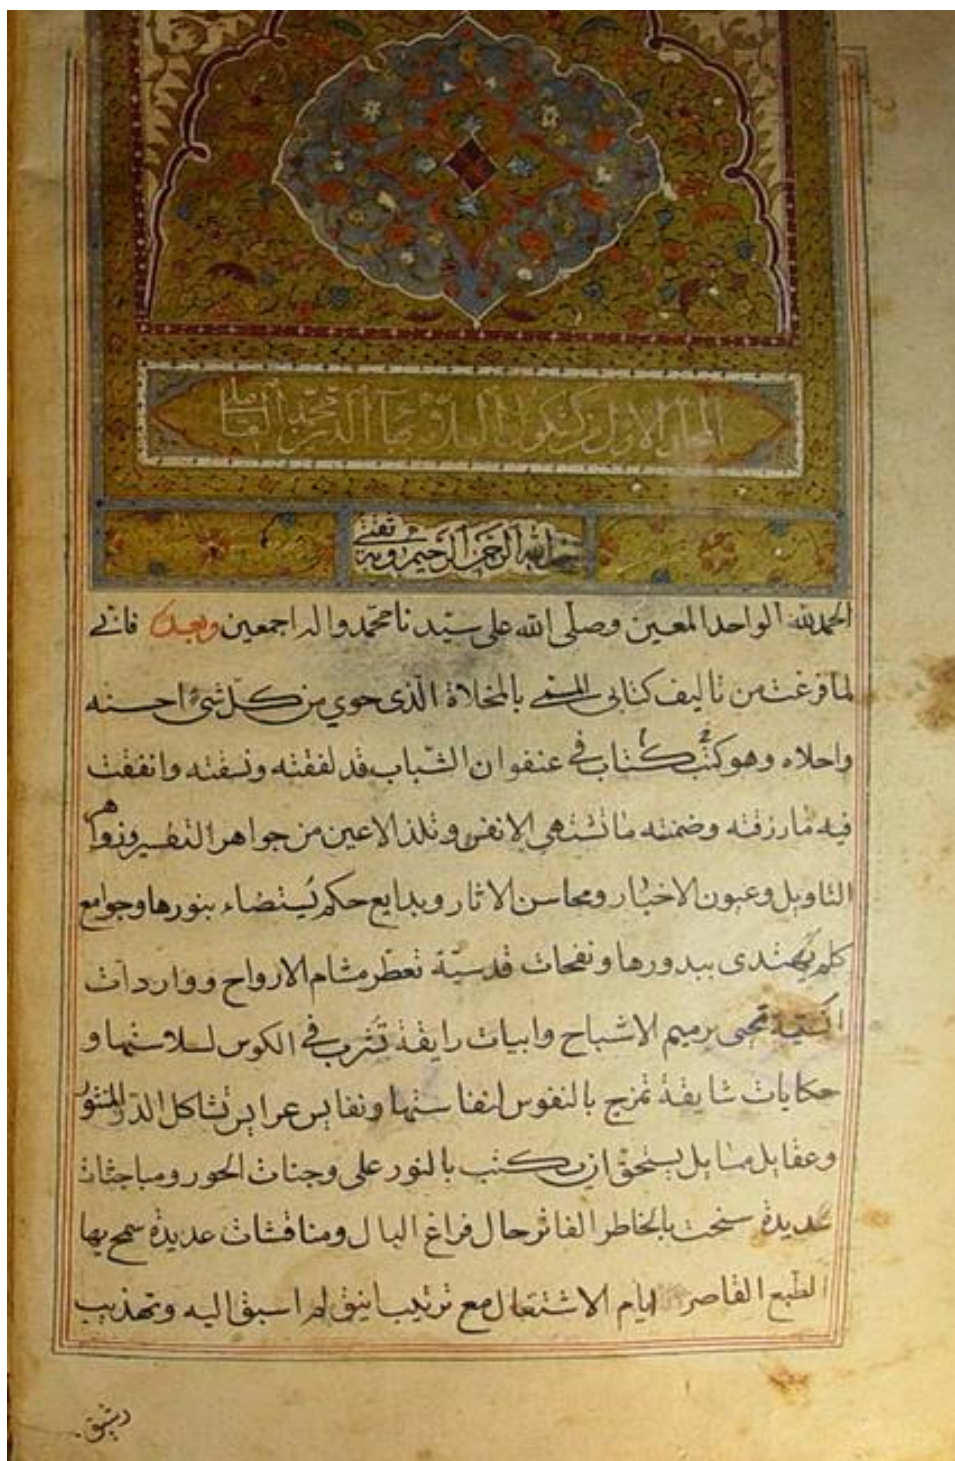 المجلد الاول من كشكول العلامة بهاء الدين محمد العاملي
بسم الله الرحمن الرحيم وبه ثقتي
الحمد لله الواحد المعين وصلى الله على سيدنا محمد واله اجمعين وبعد فاني
لما فرغت من تاليف كتابي المسمى بالمخلاة الذى حوي من كل شئ احسنه
واحلاه وهو كتاب كتب في عنفوان الشباب قد لفقته ونسقته وانفقت
فيه ما رزقته وضمنته ما تشتهى الانفس وتلذ الاعين من جواهر التفسير وزواهر
التاويل وعيون الاخبار ومحاسن الاثار وبدايع حكم يستضاء بنورها وجوامع
كلم يهتدى ببدورها ونفحات قدسية تعطر مشام الارواح وواردات
انسية تحيى رميم الاشباح وابيات رايقة تشرب في الكوس لسلاستها و
حكايات شايقة تمزج بالنفوس لنفاستها ونفايس عرايس تشاكل الدر المنثور
وعقايل مسايل يستحق ان تكتب بالنور على وجنات الحور ومباحثات
عديدة سنحت بالخاطر الفاتر حال فراغ البال ومناقشات عديدة سمح بها
الطبع القاصر ايام الاشتغال مع ترتيب انيق لم اسبق اليه وتهذيب
رشيق